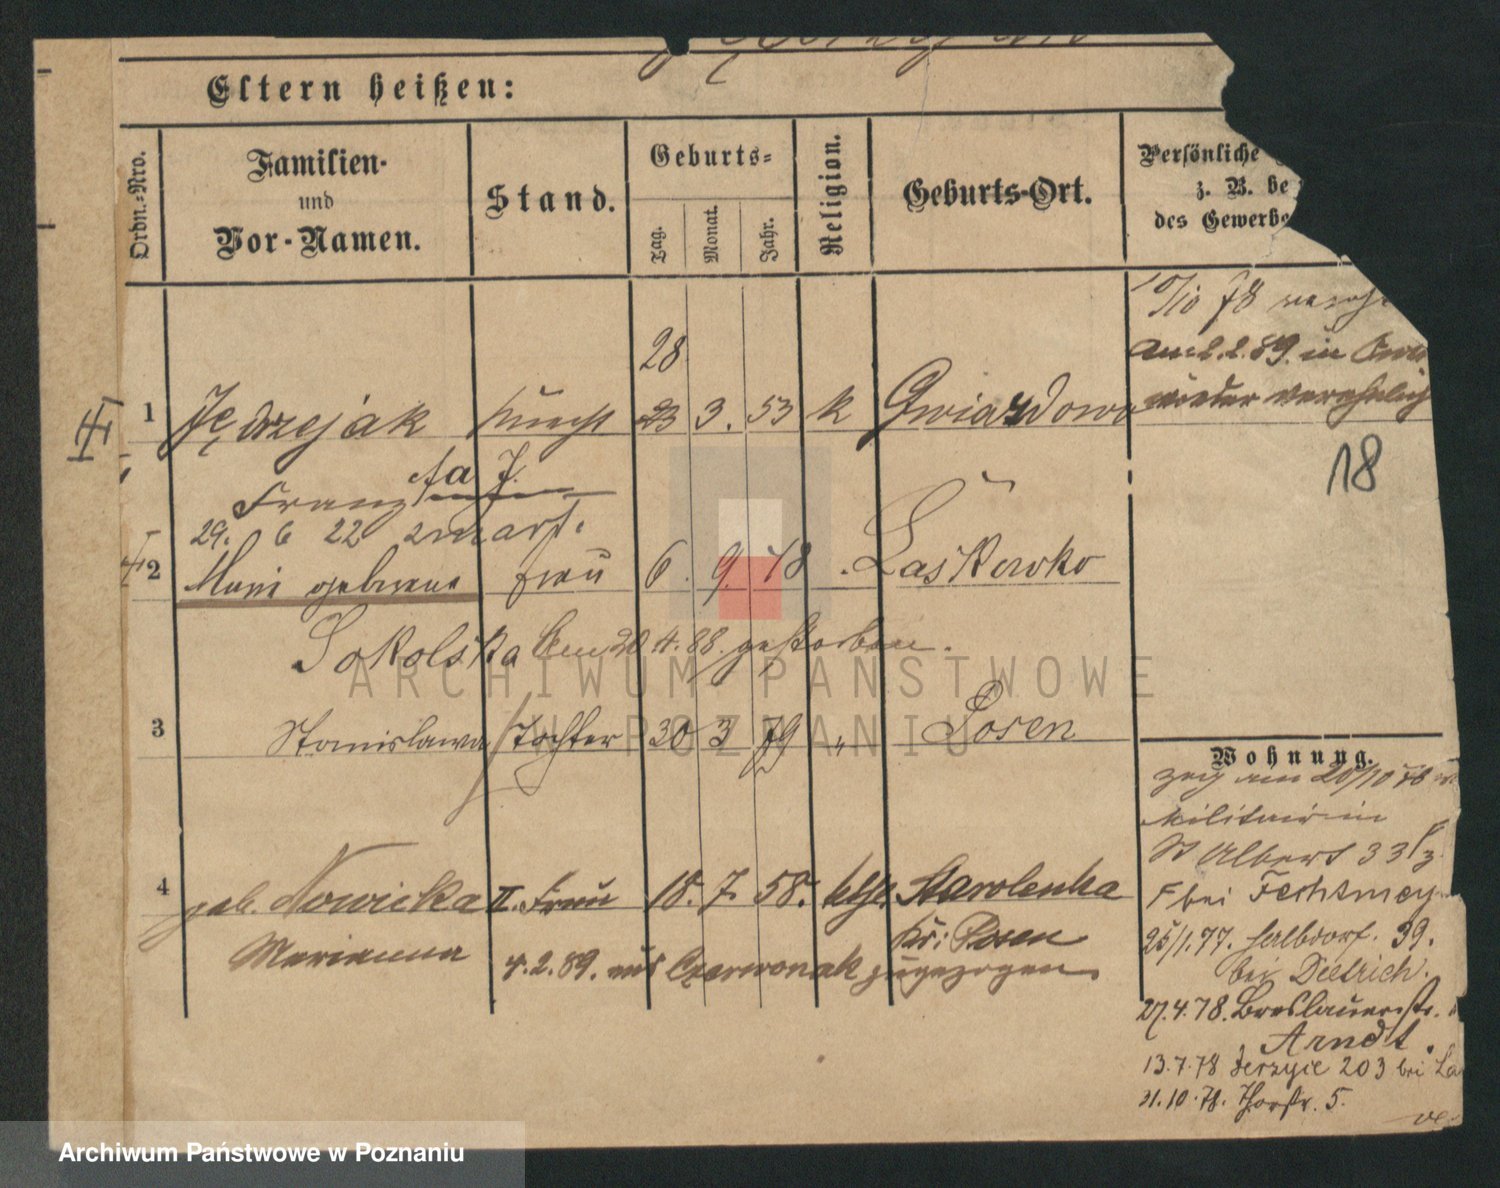 Eltern heißen:
Ordn.-Nro.
Familien-
und
Vor-Namen.
Stand.
Geburts-
Tag.
Monat.
Jahr.
Religion.
Geburts-Ort.
Persönliche
z. B. be
des Gewerbe
10/10 78
am 2.2.89. in
wieder verehelich
28
1 Jędrzejak Knecht 23 3. 53 k Gwiazdowo
18
Franz
29. 6 22 zmarł.
2 Marie geborene Frau 6. 9. 48 Laskowko
Sokolska Am 20.4.88. gestorben.
3 Stanislawa Tochter 30 3 79 " Posen
Wohnung.
zog am 20/10 76
Militair in
St Albert 33/3
F bei Fechtmey
4 geb. Nowicka II. Frau 18. 7. 58. kath. Starolenka
Kr: Posen
Marianna 4.2.89. aus Czerwonak zugezogen.
25/1.77. Halbdorf. 39.
bei Dietrich.
27.4.78. Breslauerstr.
Arndt.
13.7.78 Jerzyce 203 bei La
31.10.78. Thorstr. 5.
ARCHIWUM PAŃSTWOWE
W POZNANIU
Archiwum Państwowe w Poznaniu